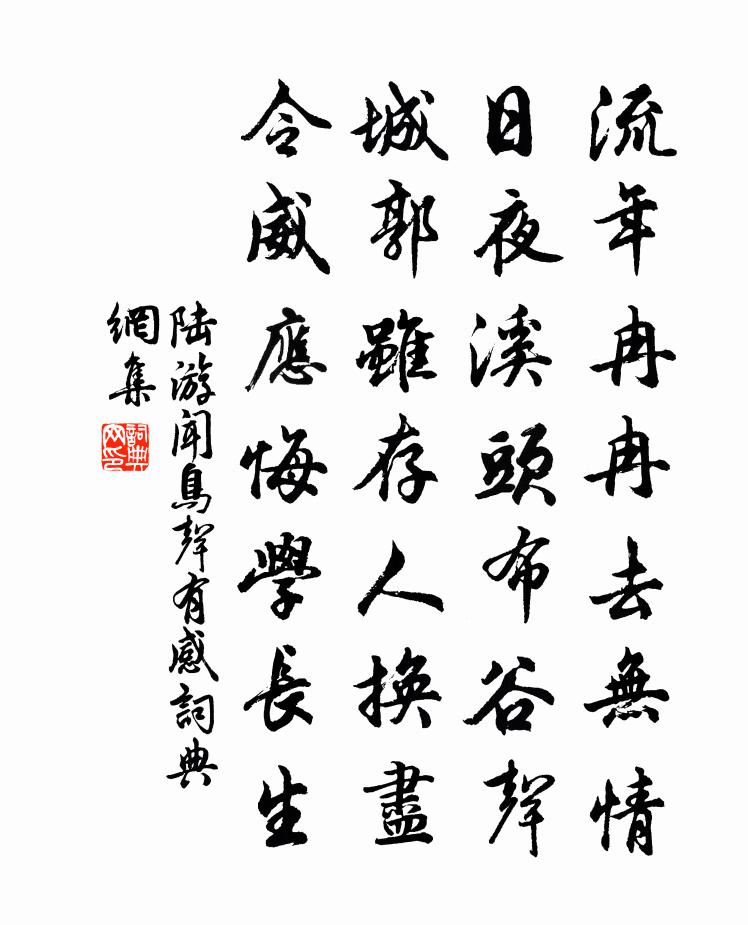 流年冉冉去無情
日夜溪頭布谷聲
城郭雖存人換盡
令威應悔學長生
陆游闻鳥聲有感詞典
網集
詞典
网印